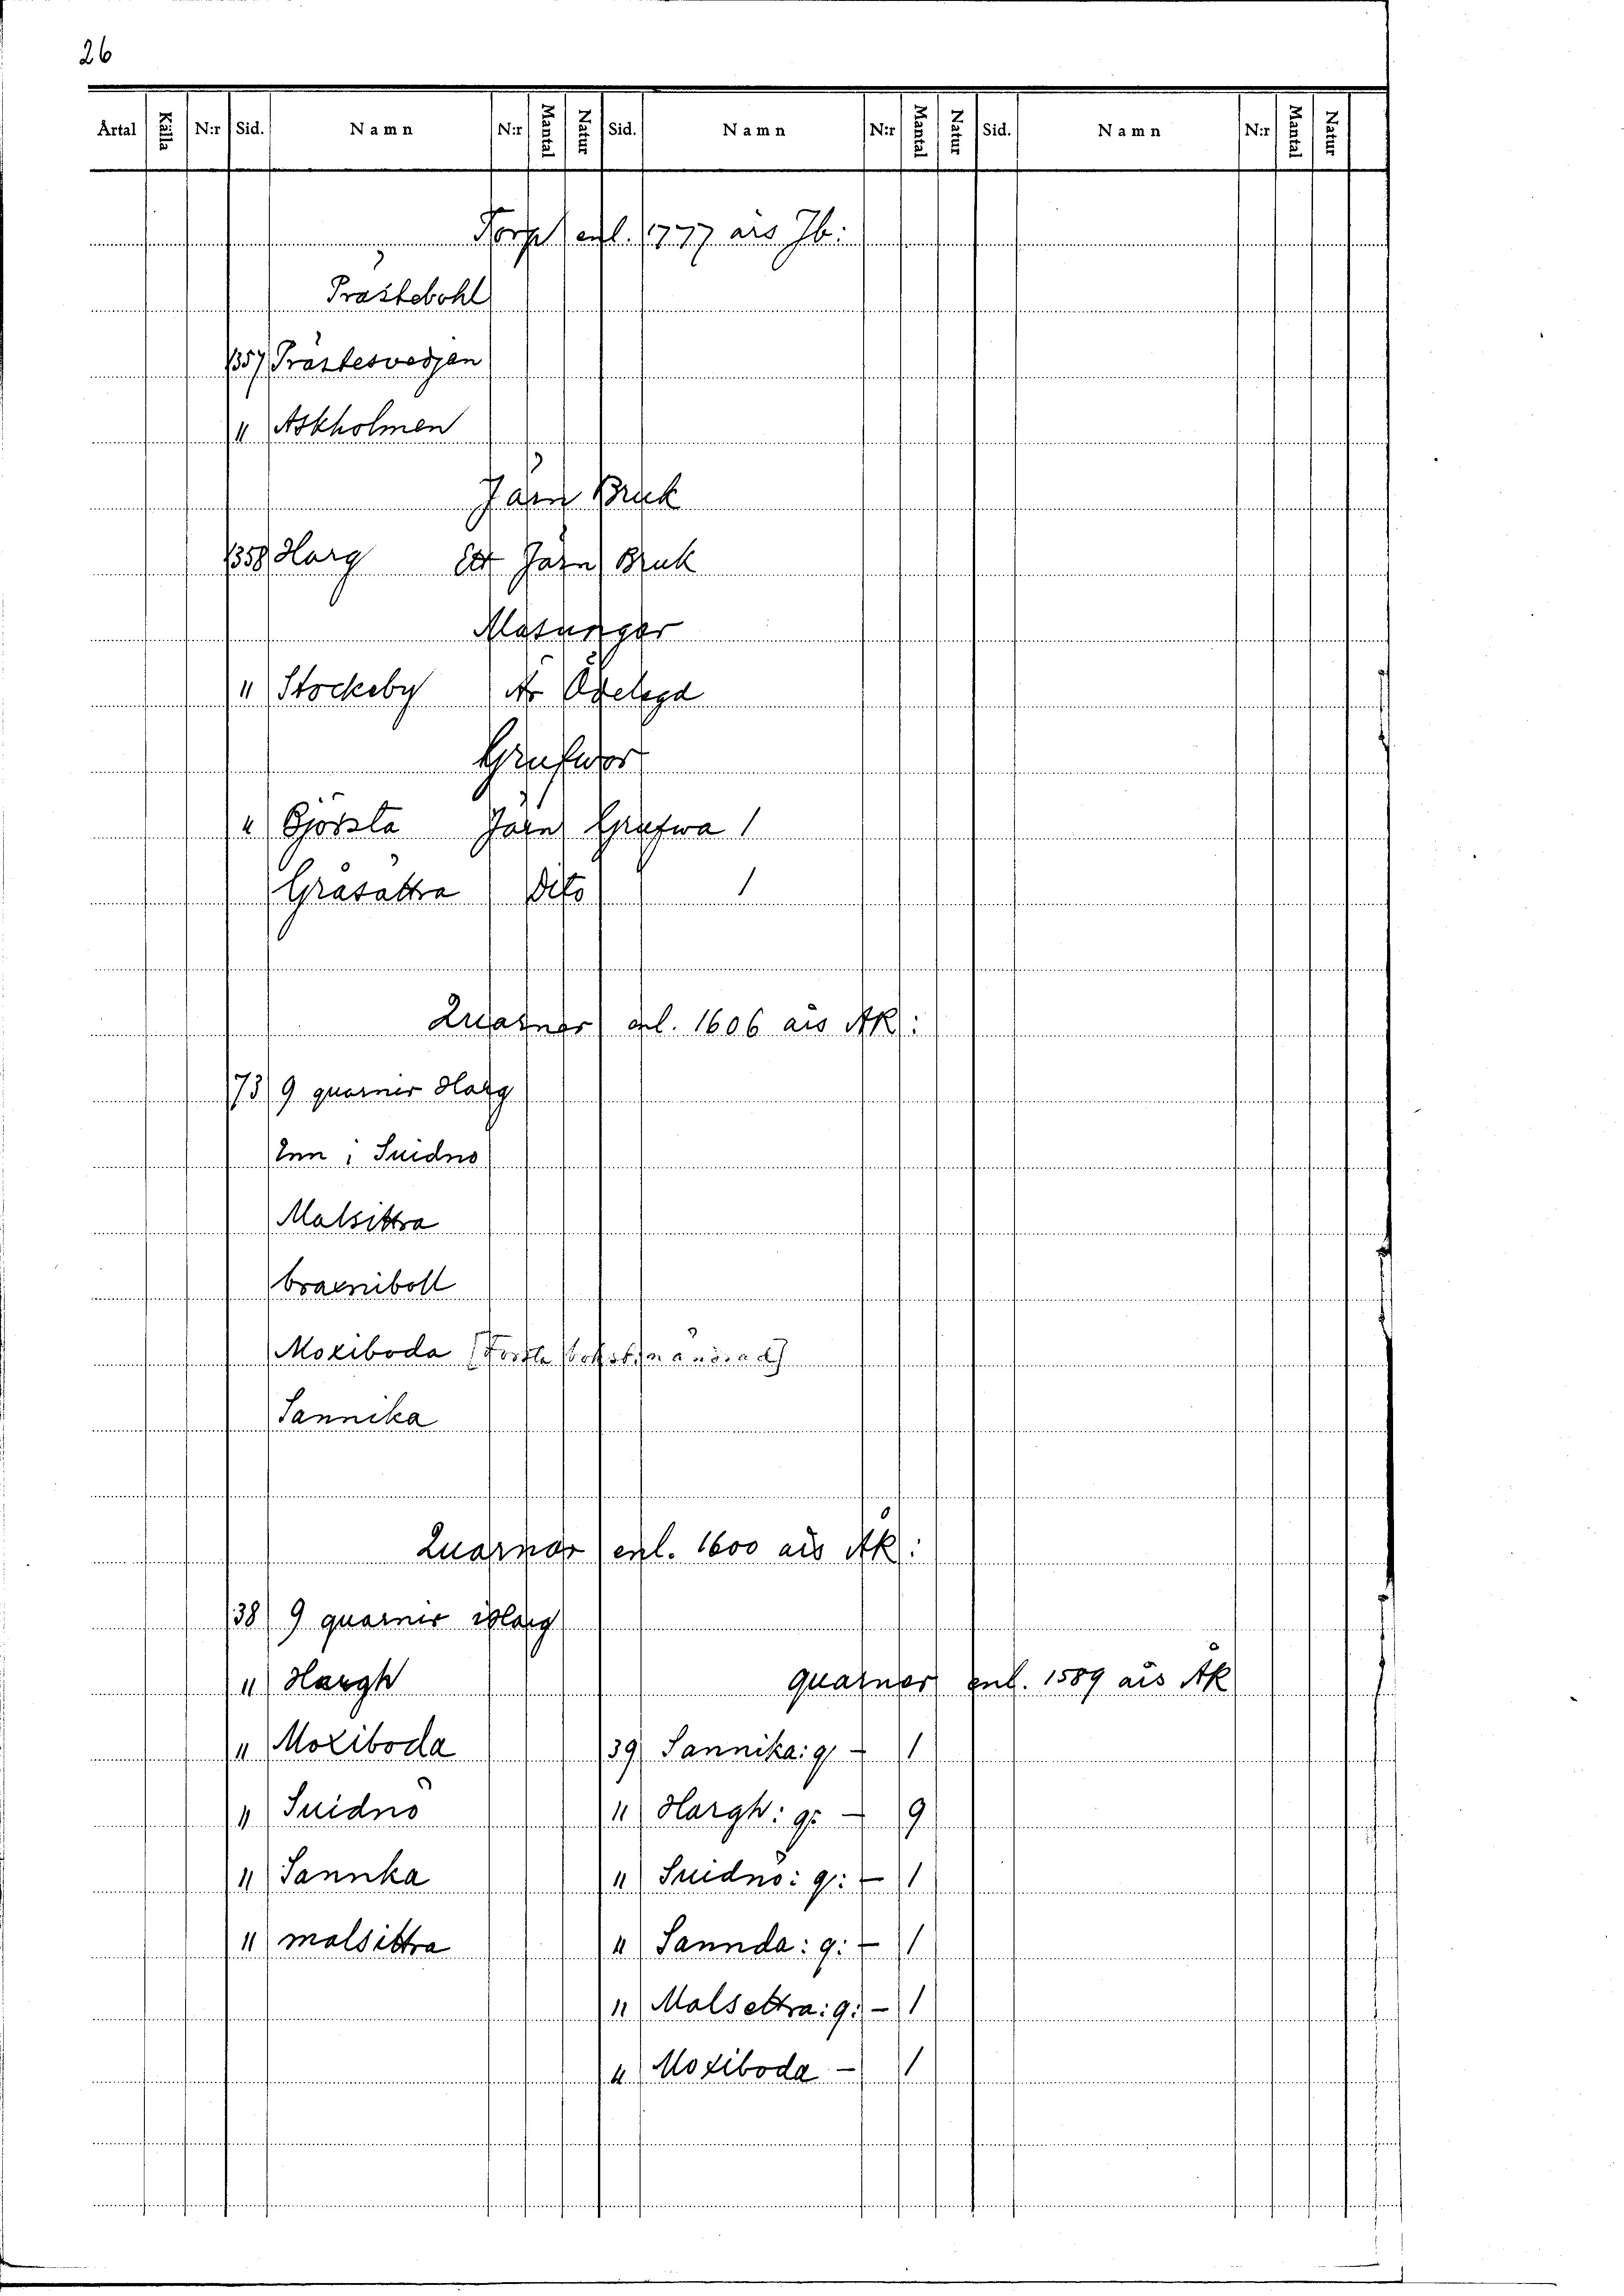 26
Årtal Källa N:r Sid. Namn N:r Mantal Natur Sid. Namn N:r Mantal Natur Sid. Namn N:r Mantal Natur
Torp enl. 1777 års Jb:
Prästebohl
1357 Prästesvedjan
" Askholmen
Järn Bruk
1358 Harg Ett Järn Bruk
Masungar
" Stockeby Är Ödelagd
Grufwor
" Gjörsta Järn Grufwa 1
Gråsättra Dito 1
Quarnar enl. 1606 års ÅK:
73 9 quarner Harg
Enn i Suidno
Malsittra
braeniboll
Moxiboda [Första bokst. n ändrad]
Sannika
Quarnar enl. 1600 års ÅK:
38 9 quarner i Harg
" Hargh quarnar enl. 1589 års ÅK
" Moxiboda 39 Sannika: q - 1
" Suidnö " Hargh: q: - 9
" Sannka " Suidnö: q: - 1
" malsittra " Sannda: q: - 1
" Malsettra: q: - 1
" Moxiboda - 1